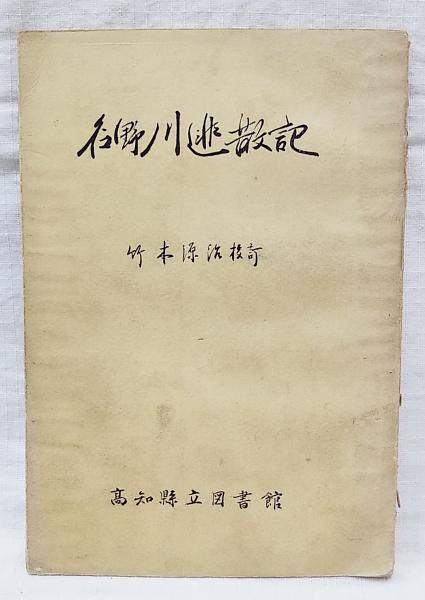 名野川逃散記
竹本源治校訂
髙知縣立図書館